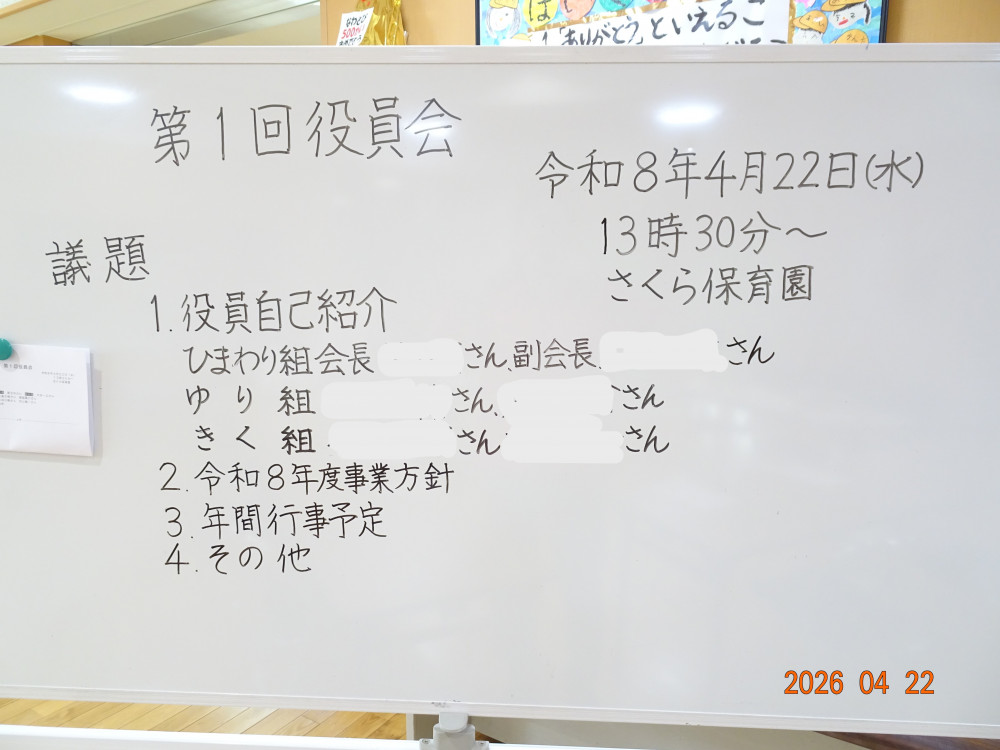 なわとび
500かい
「ありがとう」といえるこ
第1回役員会
令和8年4月22日(水)
13時30分～
さくら保育園
議題
1.役員自己紹介
ひまわり組会長 さん、副会長 さん
ゆり組 さん、 さん
きく組 さん さん
2.令和8年度事業方針
3.年間行事予定
4.その他
2026 04 22